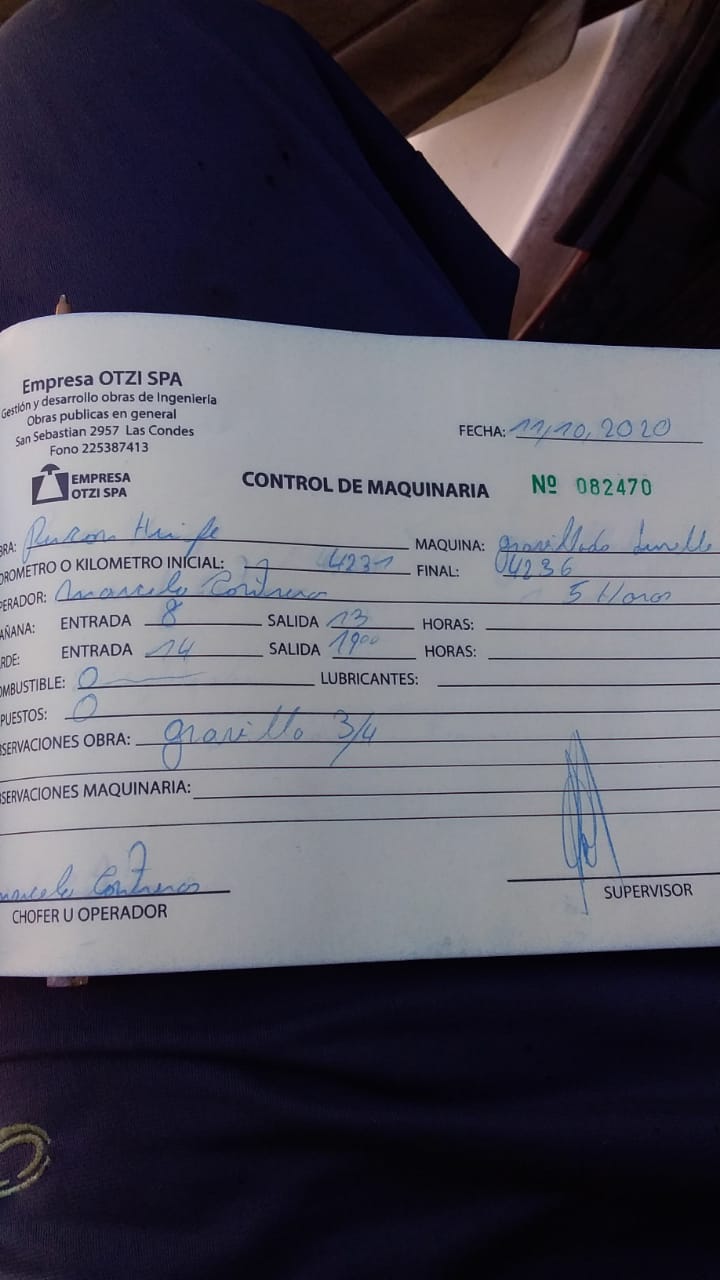 Empresa OTZI SPA
Gestión y desarrollo obras de Ingeniería
Obras publicas en general
San Sebastian 2957 Las Condes
Fono 225387413
FECHA: 11/10, 2020
EMPRESA
OTZI SPA
CONTROL DE MAQUINARIA Nº 082470
BRA: Pucon MAQUINA:
OROMETRO O KILOMETRO INICIAL: 4231 FINAL: 04236
PERADOR: Marcelo Contreras 5 Horas
AÑANA: ENTRADA 8 SALIDA 13 HORAS:
RDE: ENTRADA 14 SALIDA 19⁰⁰ HORAS:
OMBUSTIBLE: 0 LUBRICANTES:
PUESTOS: 0
SERVACIONES OBRA: gravillo 3/4
SERVACIONES MAQUINARIA:
marcelo Contreras
CHOFER U OPERADOR
SUPERVISOR